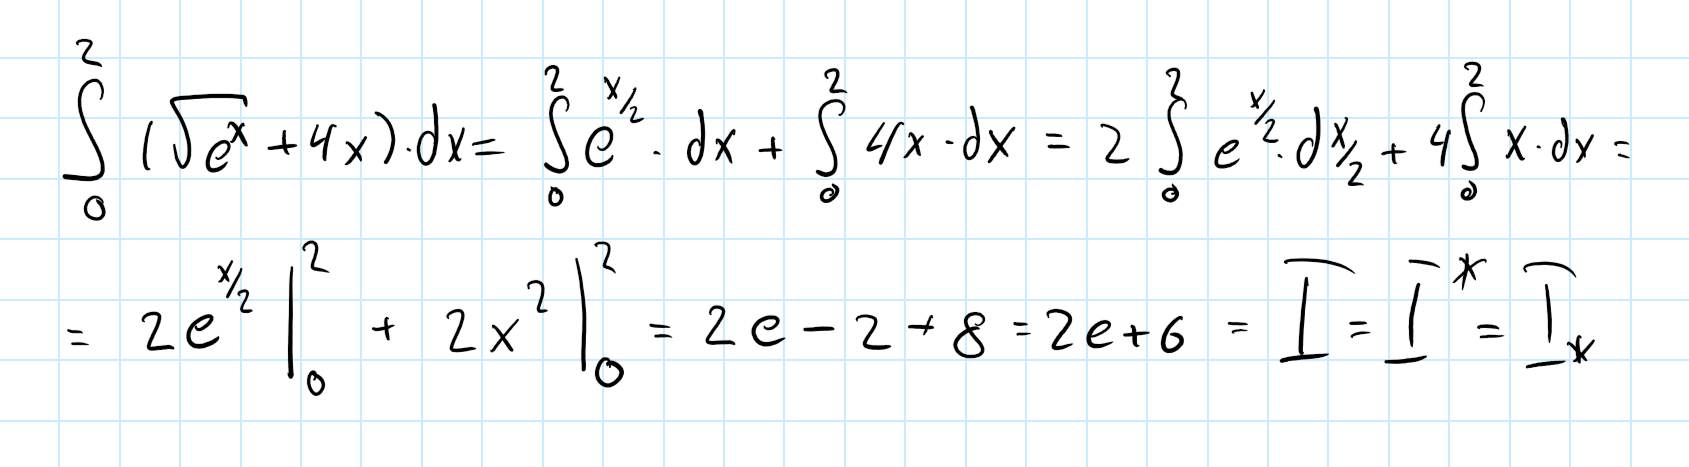 ∫₀² (√(eˣ) + 4x)·dx = ∫₀² e^(x/2) · dx + ∫₀² 4x · dx = 2 ∫₀² e^(x/2) · d x/2 + 4 ∫₀² x · dx =
= 2e^(x/2) |₀² + 2x² |₀² = 2e − 2 + 8 = 2e + 6 = I = I^* = I_*